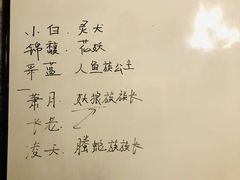 小白.灵犬
锦馥.花妖
蓝.人鱼族公主
萧月.妖狼族族长
长老.
凌天.腾蛇族族长